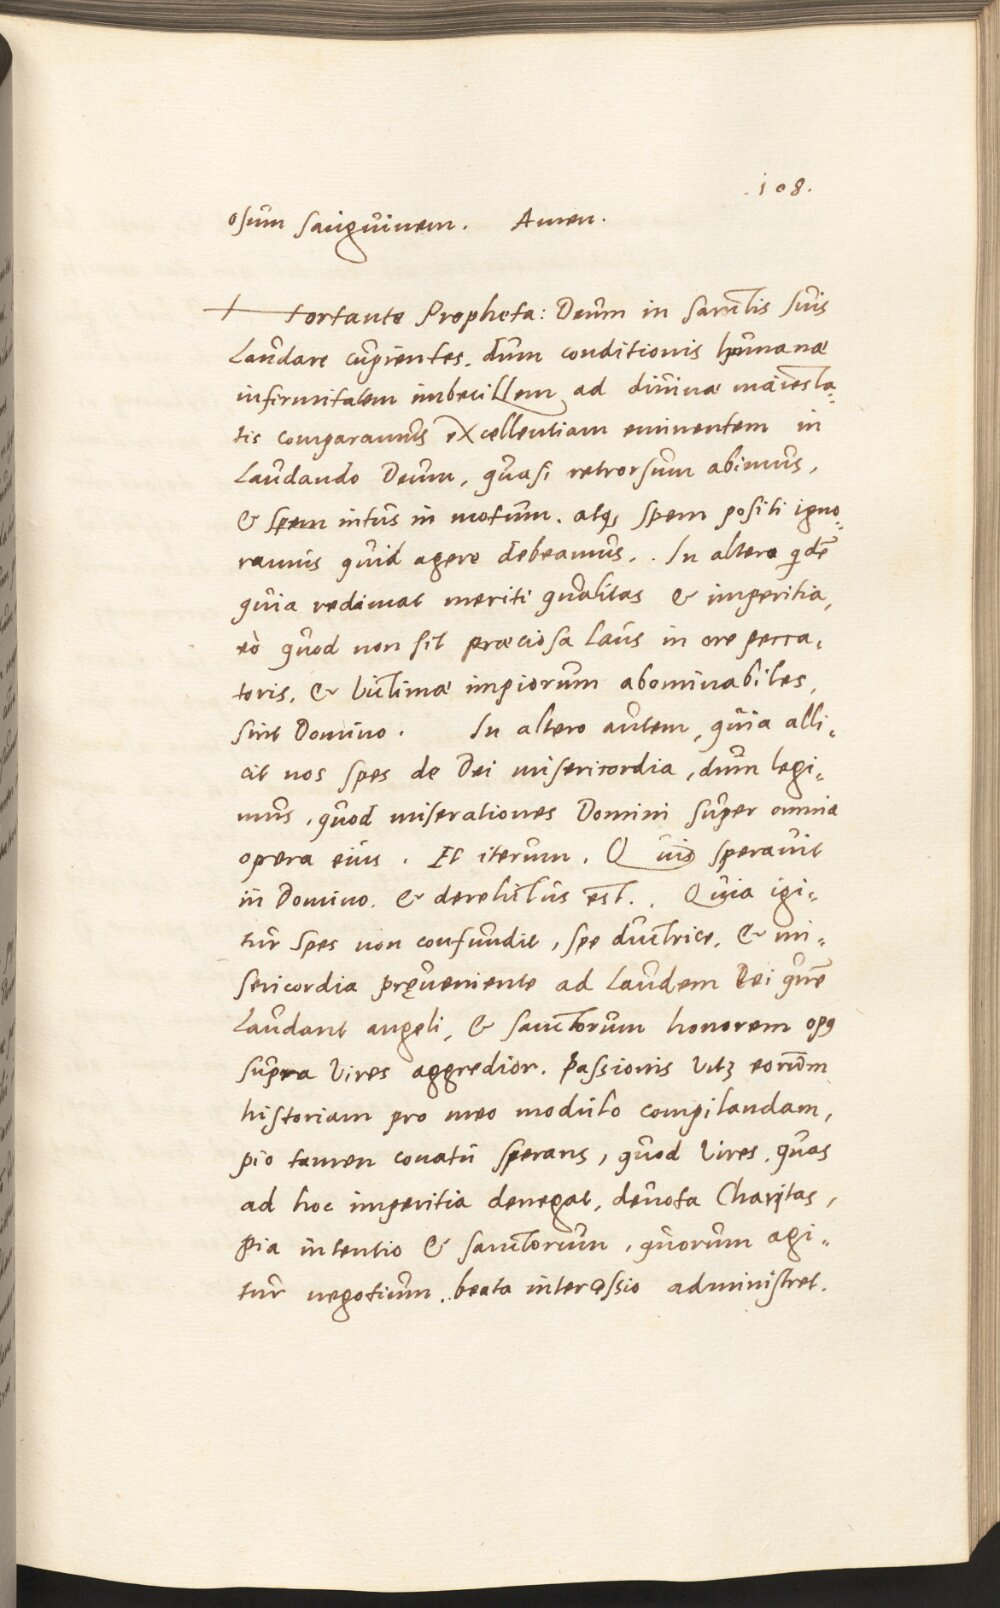 .108.
osum sanguinem. Amen.
Hortante Propheta: Deum in sanctis suis
laudare cupientes. dum conditionis humanæ
infirmitatem imbecillem ad diuinæ maiesta-
tis comparamus excellentiam eminentem in
laudando Deum, quasi retrorsum abimus,
& spem intus in motum. atq, spem positi igno-
ramus quid agere debeamus.. In altero qdē
quia redimat meriti qualitas & imperitia,
eò quod non sit præciosa laus in ore pecca-
toris, & victimæ impiorum abominabiles,
sint Domino. In altero autem, quia alli-
cit nos spes de Dei misericordia, dum legi-
mus, quod miserationes Domini super omnia
opera eius. Et iterum. Quis sperauit
in Domino. & derelictus est.. Quia igi-
tur spes non confundit, spe ductrice, & mi-
sericordia pręueniente ad laudem Dei quē
laudant angeli, & sanctorum honorem opꝰ
supra vires aggredior. passionis vitę eorum
historiam pro meo modulo compilandam,
pio tamen conatu sperans, quod vires, quas
ad hoc imperitia denegat, deuota Charitas,
pia intentio & sanctorum, quorum agi-
tur negotium, beata intercessio administret.